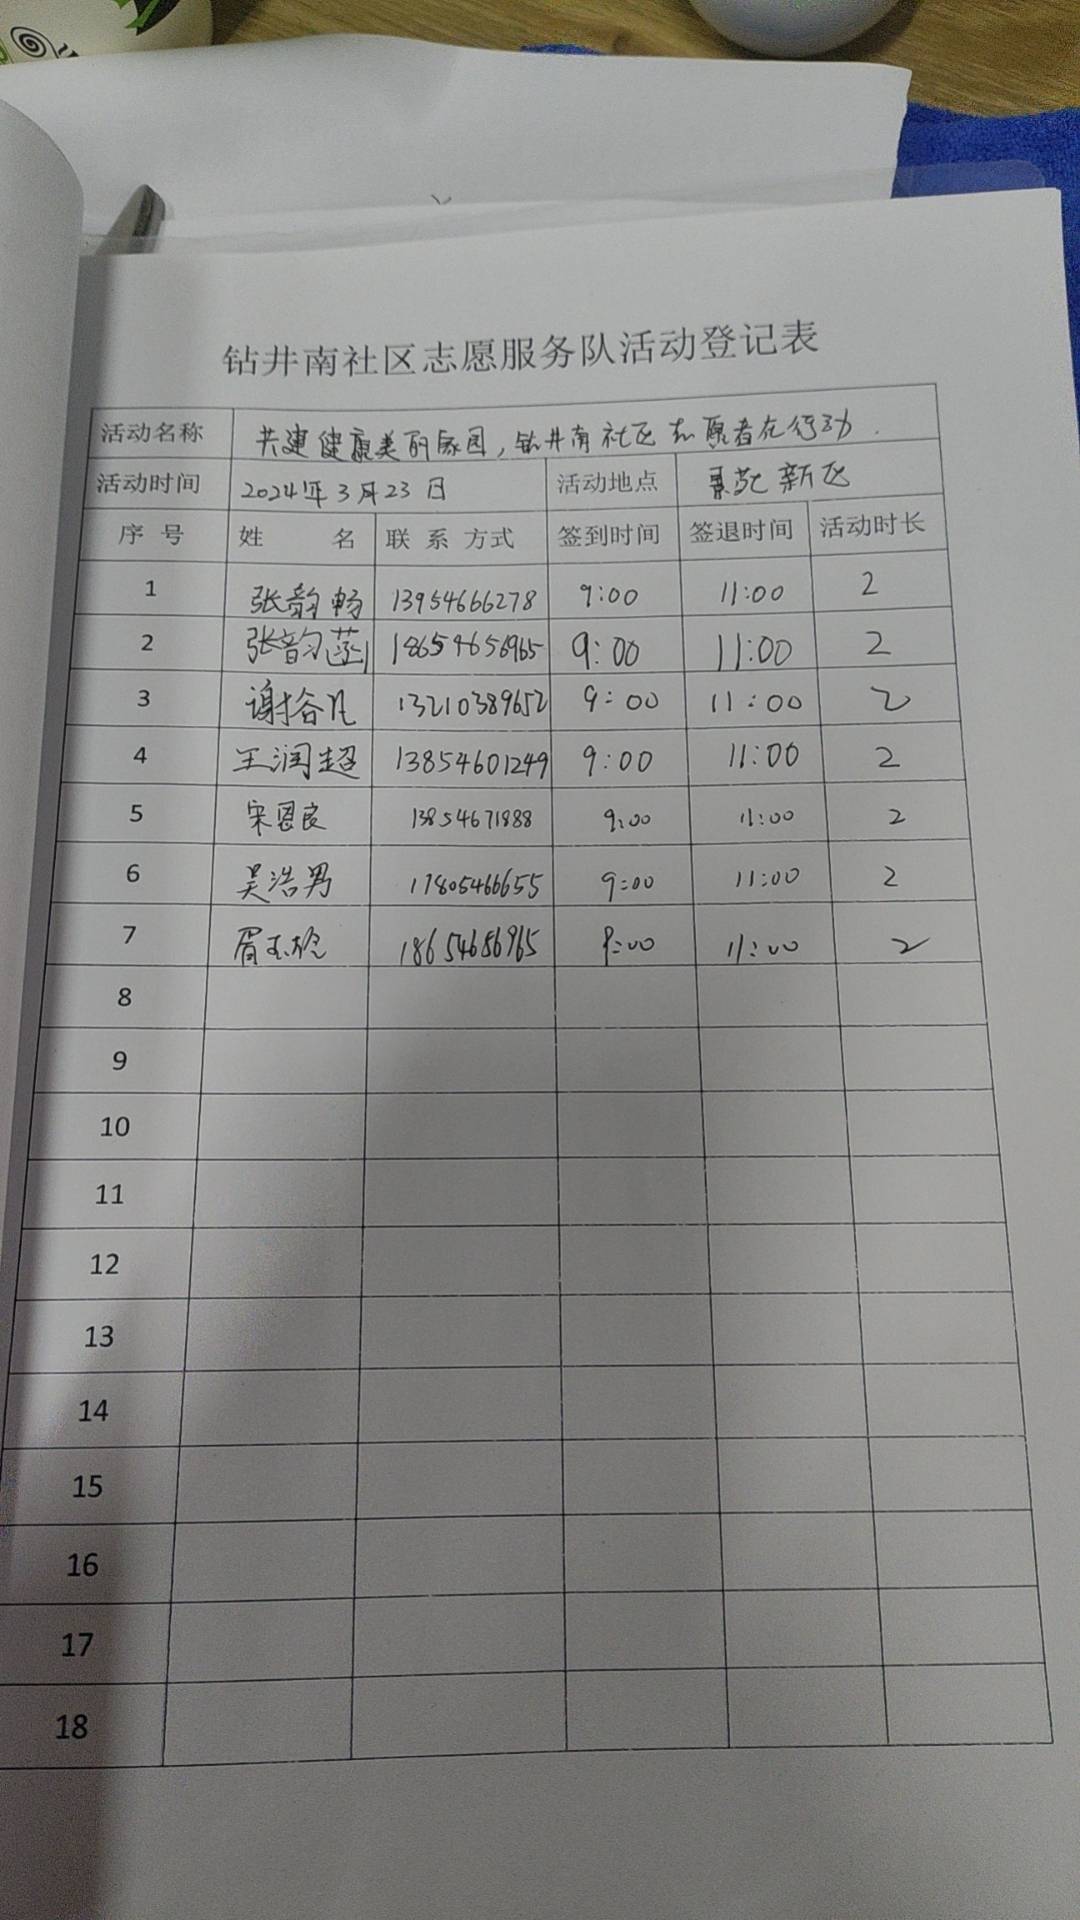 钻井南社区志愿服务队活动登记表
活动名称 共建健康美丽家园，钻井南社区志愿者在行动.
活动时间 2024年3月23日 活动地点 景苑新区
序 号 姓 名 联 系 方式 签到时间 签退时间 活动时长
1 张韵畅 13954666278 9:00 11:00 2
2 张韵菡 9:00 11:00 2
3 13210389652 9:00 11:00 2
4 王润超 13854601249 9:00 11:00 2
5 宋恩良 13854671888 9:00 11:00 2
6 吴浩男 17805466655 9:00 11:00 2
7 18654686965 9:00 11:00 2
8
9
10
11
12
13
14
15
16
17
18